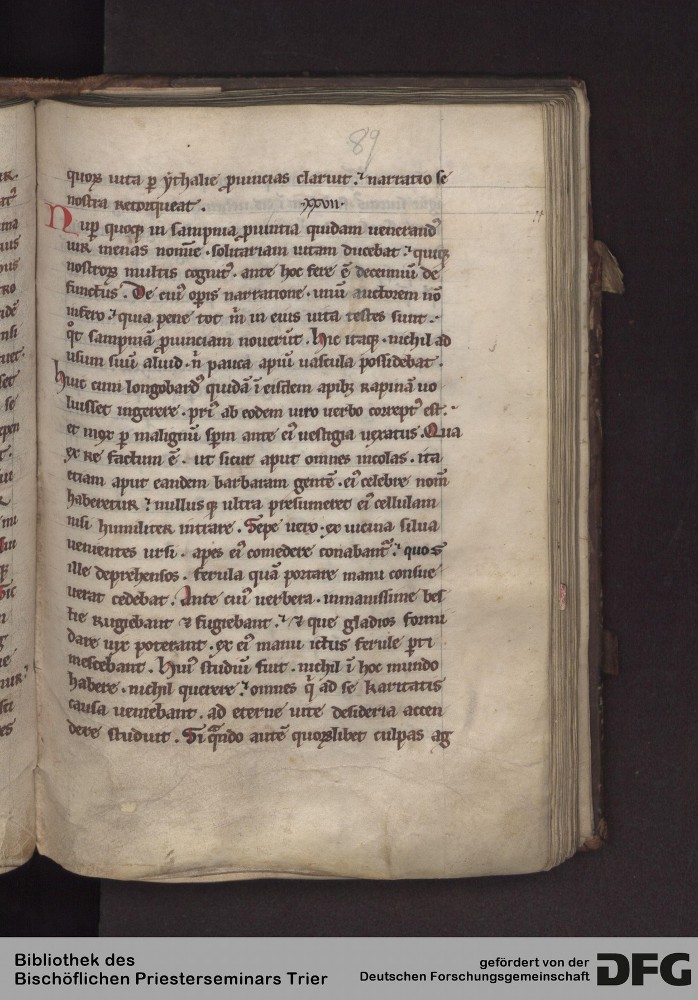 89
quoꝝ uita ꝑ ẏthalie ꝓuincias claruit. narratio se
nostra retorqueat. xxvii.
Nuꝑ quoqꝫ in sampnia ꝓuintia quidam uenerand᷒
uir menas nomīe. solitariam uitam ducebat. quiqꝫ
nostroꝝ multis cognit᷒. ante hoc fere ē decenniū de
functus. De cui᷒ oꝑis narratione. unū auctorem nō
infero. quia pene tot m̄ in eius uita testes sunt.
qͦt sampniā ꝓuinciam nouerūt. Hic itaqꝫ. nichil ad
usum suū aliud. n̄ pauca apiū uascula possidebat.
Huic cum longobard᷒ quidā ī eisdem apibꝫ rapinā uo
luisset ingerere. pri᷒ ab eodem uiro uerbo corrept᷒ est.
et mox ꝑ malignū sp̄m ante ei᷒ uestigia uexatus. Qua
ex re factum ē. ut sicut aput omnes incolas. ita
etiam aput eandem barbaram gentē. ei᷒ celebre nom̄
haberetur. nullusqꝫ ultra presumeret ei᷒ cellulam
nisi humiliter intrare. Sepe uero. ex uicina silua
uenientes ursi. apes ei᷒ comedere conabant᷑. quos
ille deprehensos. ferula quā portare manu consue
uerat cedebat. Ante cui᷒ uerbera. inmanissime bes
tie rugiebant ⁊ fugiebant. ⁊ que gladios formi
dare uix poterant. ex ei᷒ manu ictus ferule ꝑti
mescebant. Hui᷒ studiū fuit. nichil ī hoc mundo
habere. nichil querere. omnes qͥ ad se karitatis
causa ueniebant. ad eterne uite desideria accen
dere studuit. Si qͣndo autē quoꝝlibet culpas ag
Bibliothek des
Bischöflichen Priesterseminars Trier
gefördert von der
Deutschen Forschungsgemeinschaft
DFG